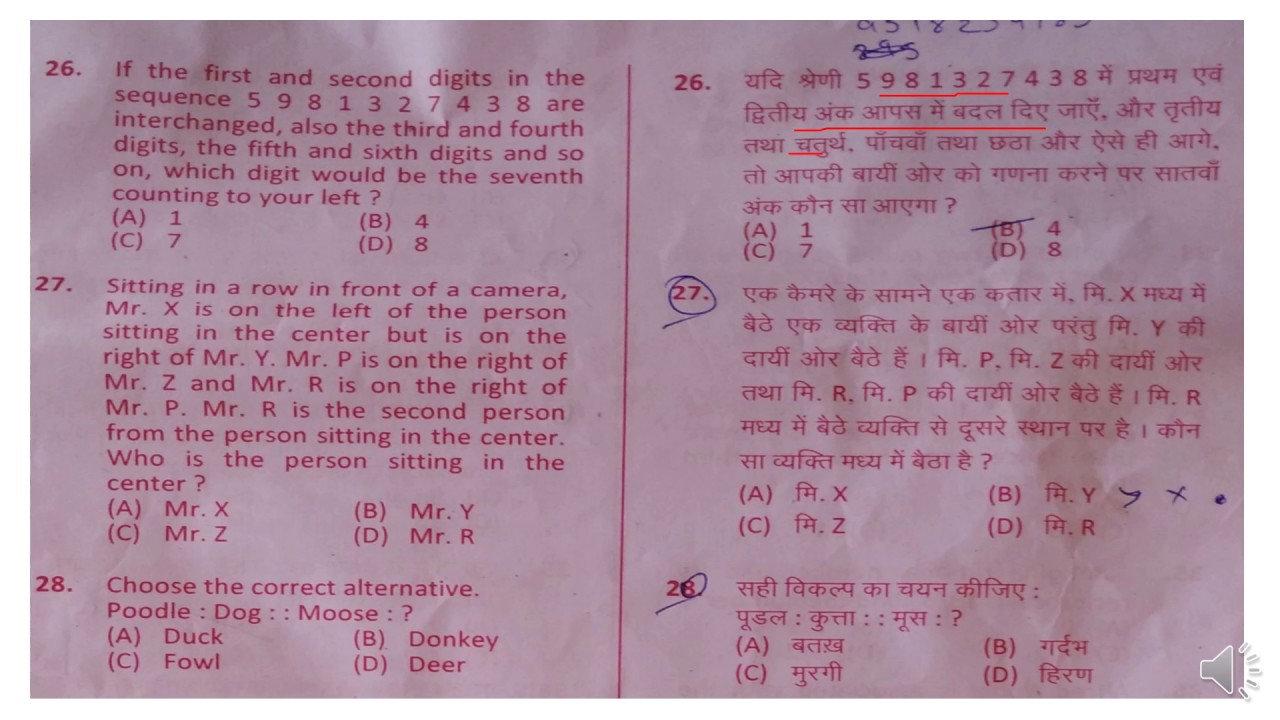 26. If the first and second digits in the
sequence 5 9 8 1 3 2 7 4 3 8 are
interchanged, also the third and fourth
digits, the fifth and sixth digits and so
on, which digit would be the seventh
counting to your left ?
(A) 1 (B) 4
(C) 7 (D) 8
27. Sitting in a row in front of a camera,
Mr. X is on the left of the person
sitting in the center but is on the
right of Mr. Y. Mr. P is on the right of
Mr. Z and Mr. R is on the right of
Mr. P. Mr. R is the second person
from the person sitting in the center.
Who is the person sitting in the
center ?
(A) Mr. X (B) Mr. Y
(C) Mr. Z (D) Mr. R
28. Choose the correct alternative.
Poodle : Dog : : Moose : ?
(A) Duck (B) Donkey
(C) Fowl (D) Deer
26. यदि श्रेणी 5 9 8 1 3 2 7 4 3 8 में प्रथम एवं
द्वितीय अंक आपस में बदल दिए जाएँ, और तृतीय
तथा चतुर्थ, पाँचवाँ तथा छठा और ऐसे ही आगे,
तो आपकी बायीं ओर को गणना करने पर सातवाँ
अंक कौन सा आएगा ?
(A) 1 (B) 4
(C) 7 (D) 8
27. एक कैमरे के सामने एक कतार में, मि. X मध्य में
बैठे एक व्यक्ति के बायीं ओर परंतु मि. Y की
दायीं ओर बैठे हैं । मि. P, मि. Z की दायीं ओर
तथा मि. R, मि. P की दायीं ओर बैठे हैं । मि. R
मध्य में बैठे व्यक्ति से दूसरे स्थान पर है । कौन
सा व्यक्ति मध्य में बैठा है ?
(A) मि. X (B) मि. Y y x
(C) मि. Z (D) मि. R
28. सही विकल्प का चयन कीजिए :
पूडल : कुत्ता : : मूस : ?
(A) बतख़ (B) गर्दभ
(C) मुरगी (D) हिरण